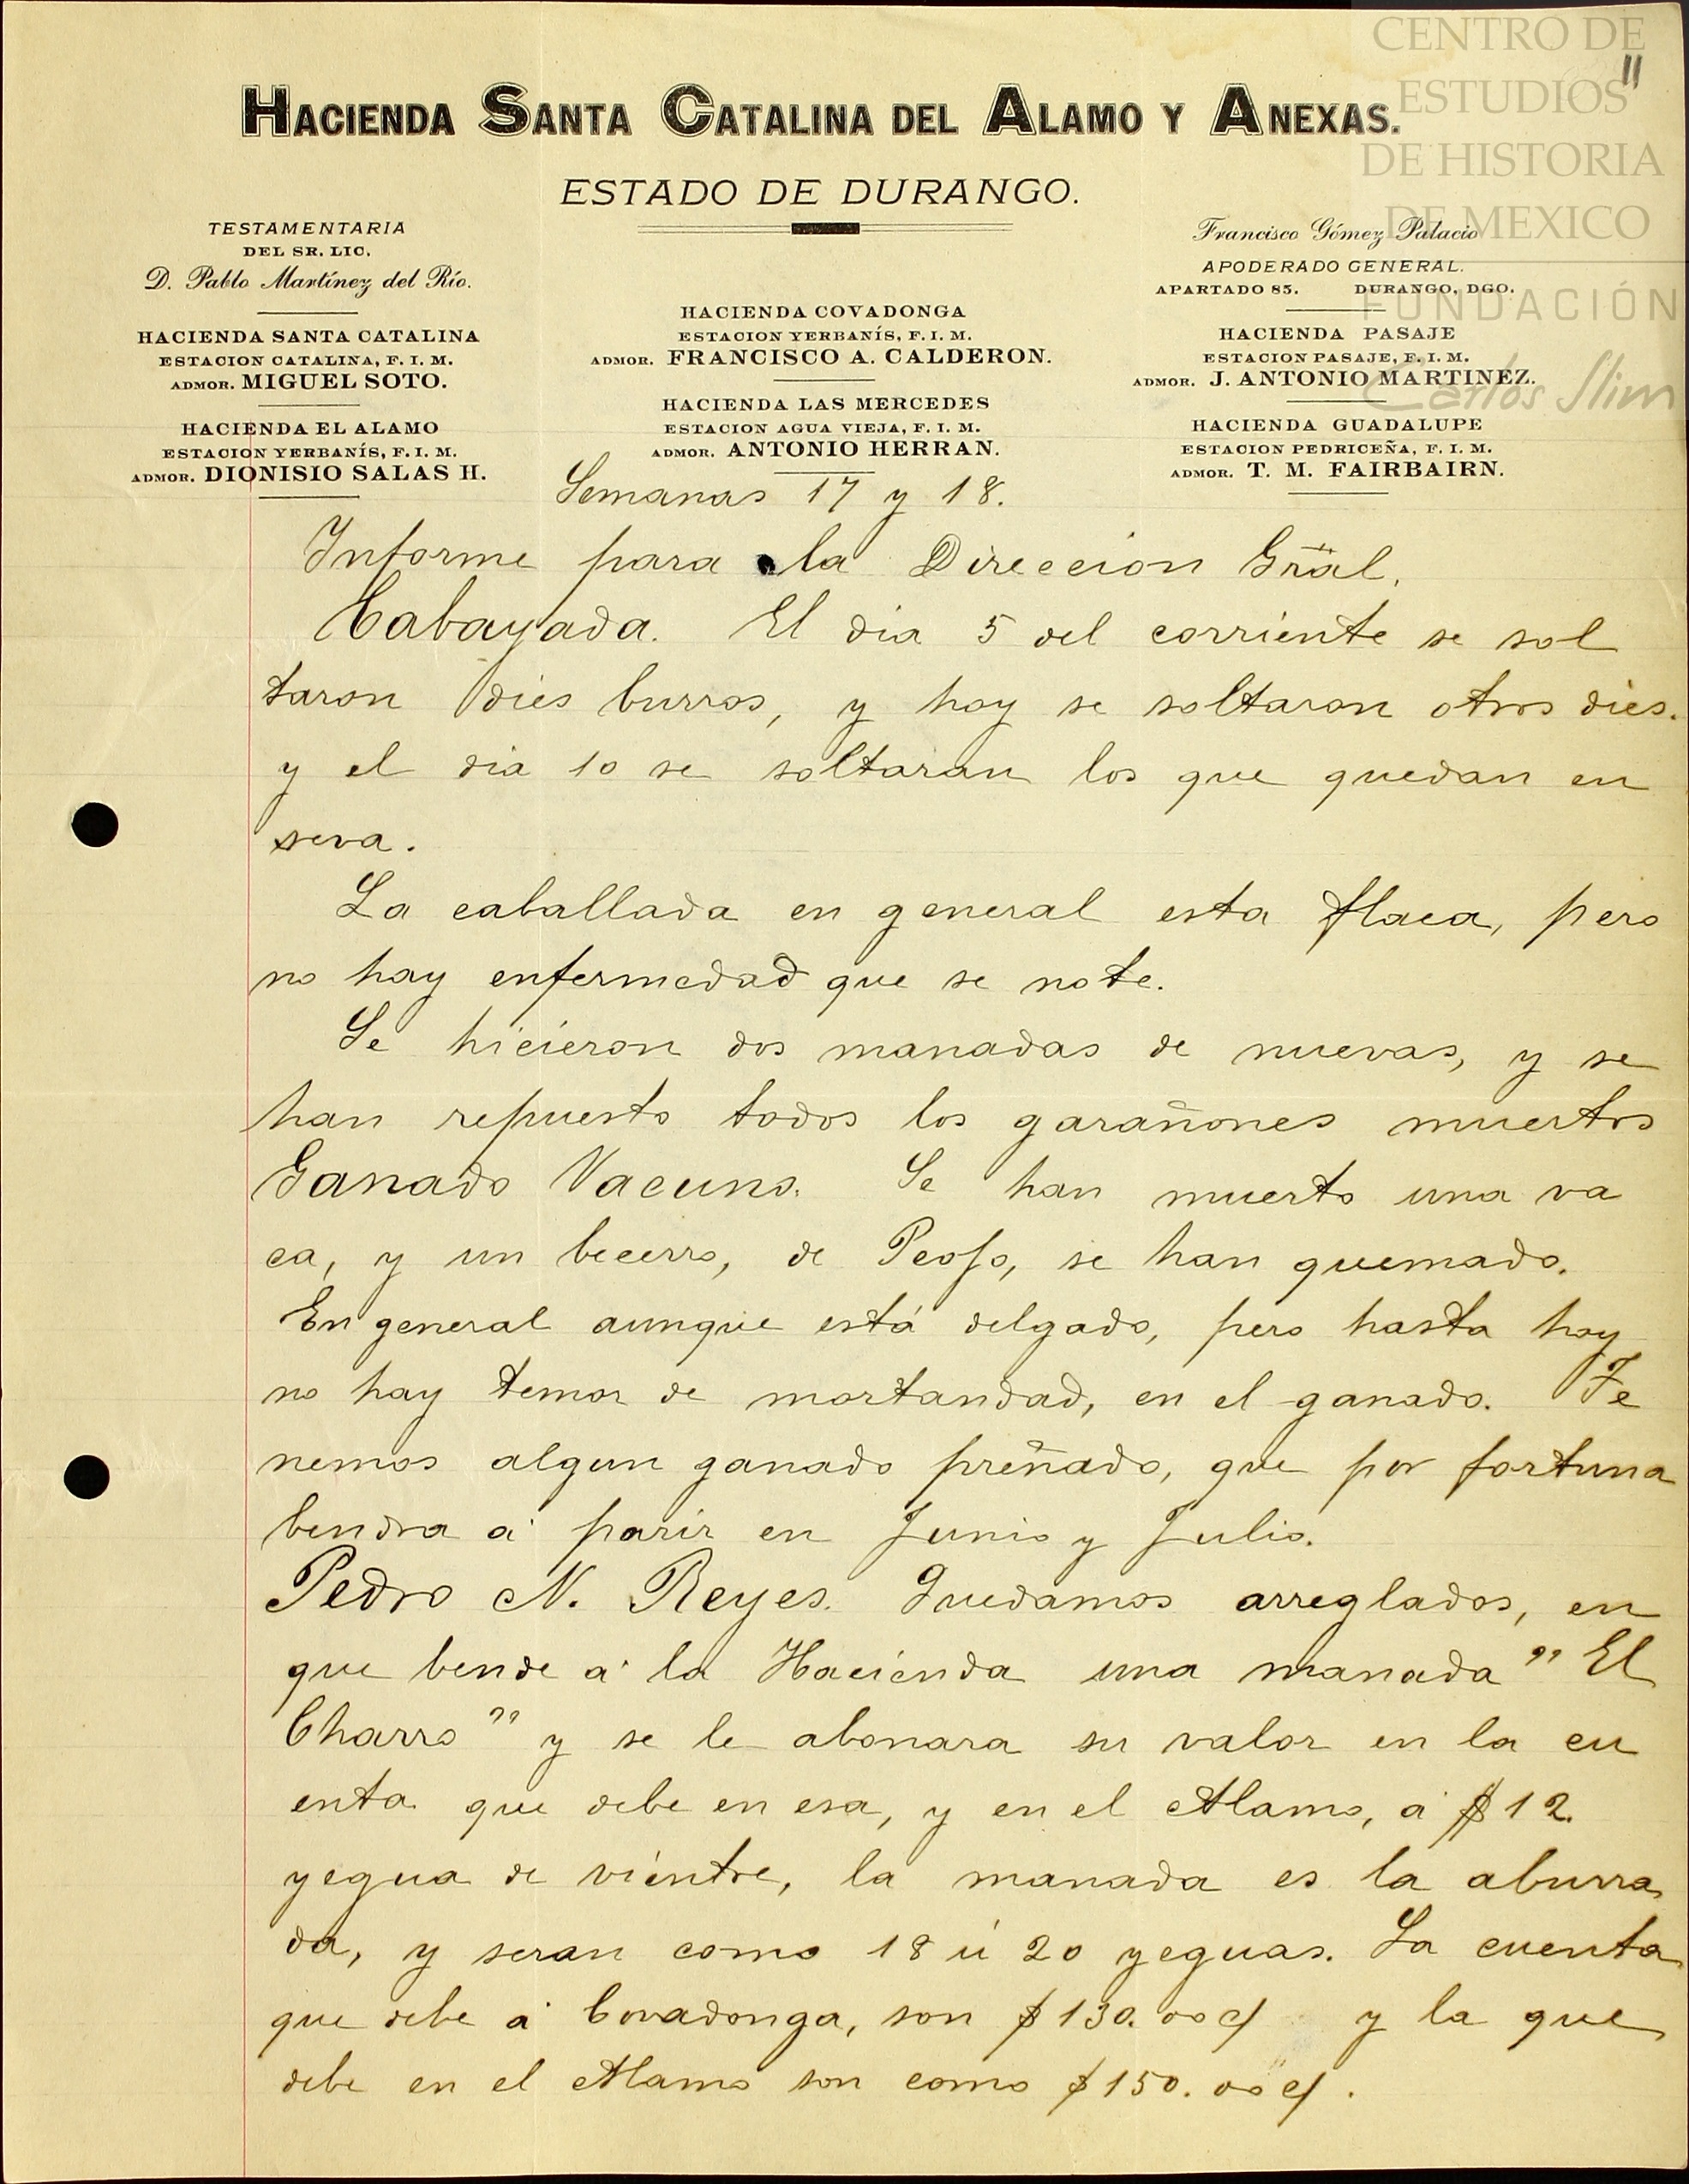 CENTRO DE
ESTUDIOS
DE HISTORIA
DE MEXICO
FUNDACIÓN
Carlos Slim
11
HACIENDA SANTA CATALINA DEL ALAMO Y ANEXAS.
ESTADO DE DURANGO.
TESTAMENTARIA
DEL SR. LIC.
D. Pablo Martínez del Río.
HACIENDA SANTA CATALINA
ESTACION CATALINA, F. I. M.
ADMOR. MIGUEL SOTO.
HACIENDA EL ALAMO
ESTACION YERBANÍS, F. I. M.
ADMOR. DIONISIO SALAS H.
HACIENDA COVADONGA
ESTACION YERBANÍS, F. I. M.
ADMOR. FRANCISCO A. CALDERON.
HACIENDA LAS MERCEDES
ESTACION AGUA VIEJA, F. I. M.
ADMOR. ANTONIO HERRAN.
Francisco Gómez Palacio
APODERADO GENERAL.
APARTADO 85. DURANGO, DGO.
HACIENDA PASAJE
ESTACION PASAJE, F. I. M.
ADMOR. J. ANTONIO MARTINEZ.
HACIENDA GUADALUPE
ESTACION PEDRICEÑA, F. I. M.
ADMOR. T. M. FAIRBAIRN.
Semanas 17 y 18.
Informe para la Direccion Gral.
Cabayada. El dia 5 del corriente se sol
taron dies burros, y hoy se soltaron otros dies.
y el dia 10 se soltaran los que quedan en
seva.
La caballada en general esta flaca, pero
no hay enfermedad que se note.
Se hicieron dos manadas de nuevas, y se
han repuesto todos los garañones muertos
Ganado Vacuno. Se han muerto una va
ca, y un becerro, de , se han quemado.
En general aunque está delgado, pero hasta hoy
no hay temor de mortandad, en el ganado. Te
nemos algun ganado preñado, que por fortuna
bendra á parir en Junio y Julio.
Pedro N. Reyes. Quedamos arreglados, en
que bende á la Hacienda una manada "El
Charro" y se le abonara su valor en la cu
enta que debe en esa, y en el Alamo, á $12.
yegua de vientre, la manada es la aburra
da, y seran como 18 ú 20 yeguas. La cuenta
que debe á Covadonga, son $130.00 c/ y la que
debe en el Alamo son como $150.00 c/.